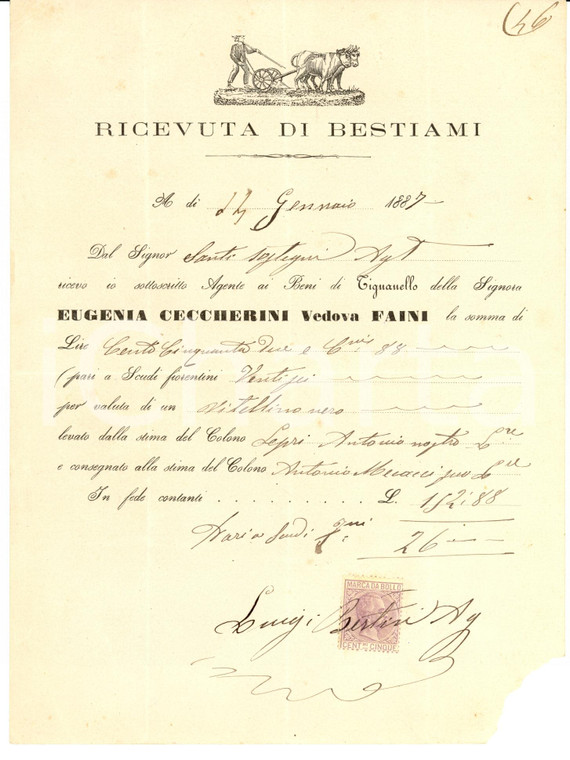 46
RICEVUTA DI BESTIAMI
A dì 14 Gennaio 1887
Dal Signor Santi Agt
ricevo io sottoscritto Agente ai Beni di Tignanello della Signora
EUGENIA CECCHERINI Vedova FAINI la somma di
Lire Cento Cinquanta due e Cmi 88
(pari a Scudi fiorentini Ventisei
per valuta di un vitellino nero
levato dalla stima del Colono Lepri Antonio nostro
e consegnato alla stima del Colono Antonio Mecacci suo
In fede contanti . . . . . . . . . . L. 152:88
Pari a Scudi 26
MARCA DA BOLLO
CENT.MI CINQUE
Luigi Bertini Ag